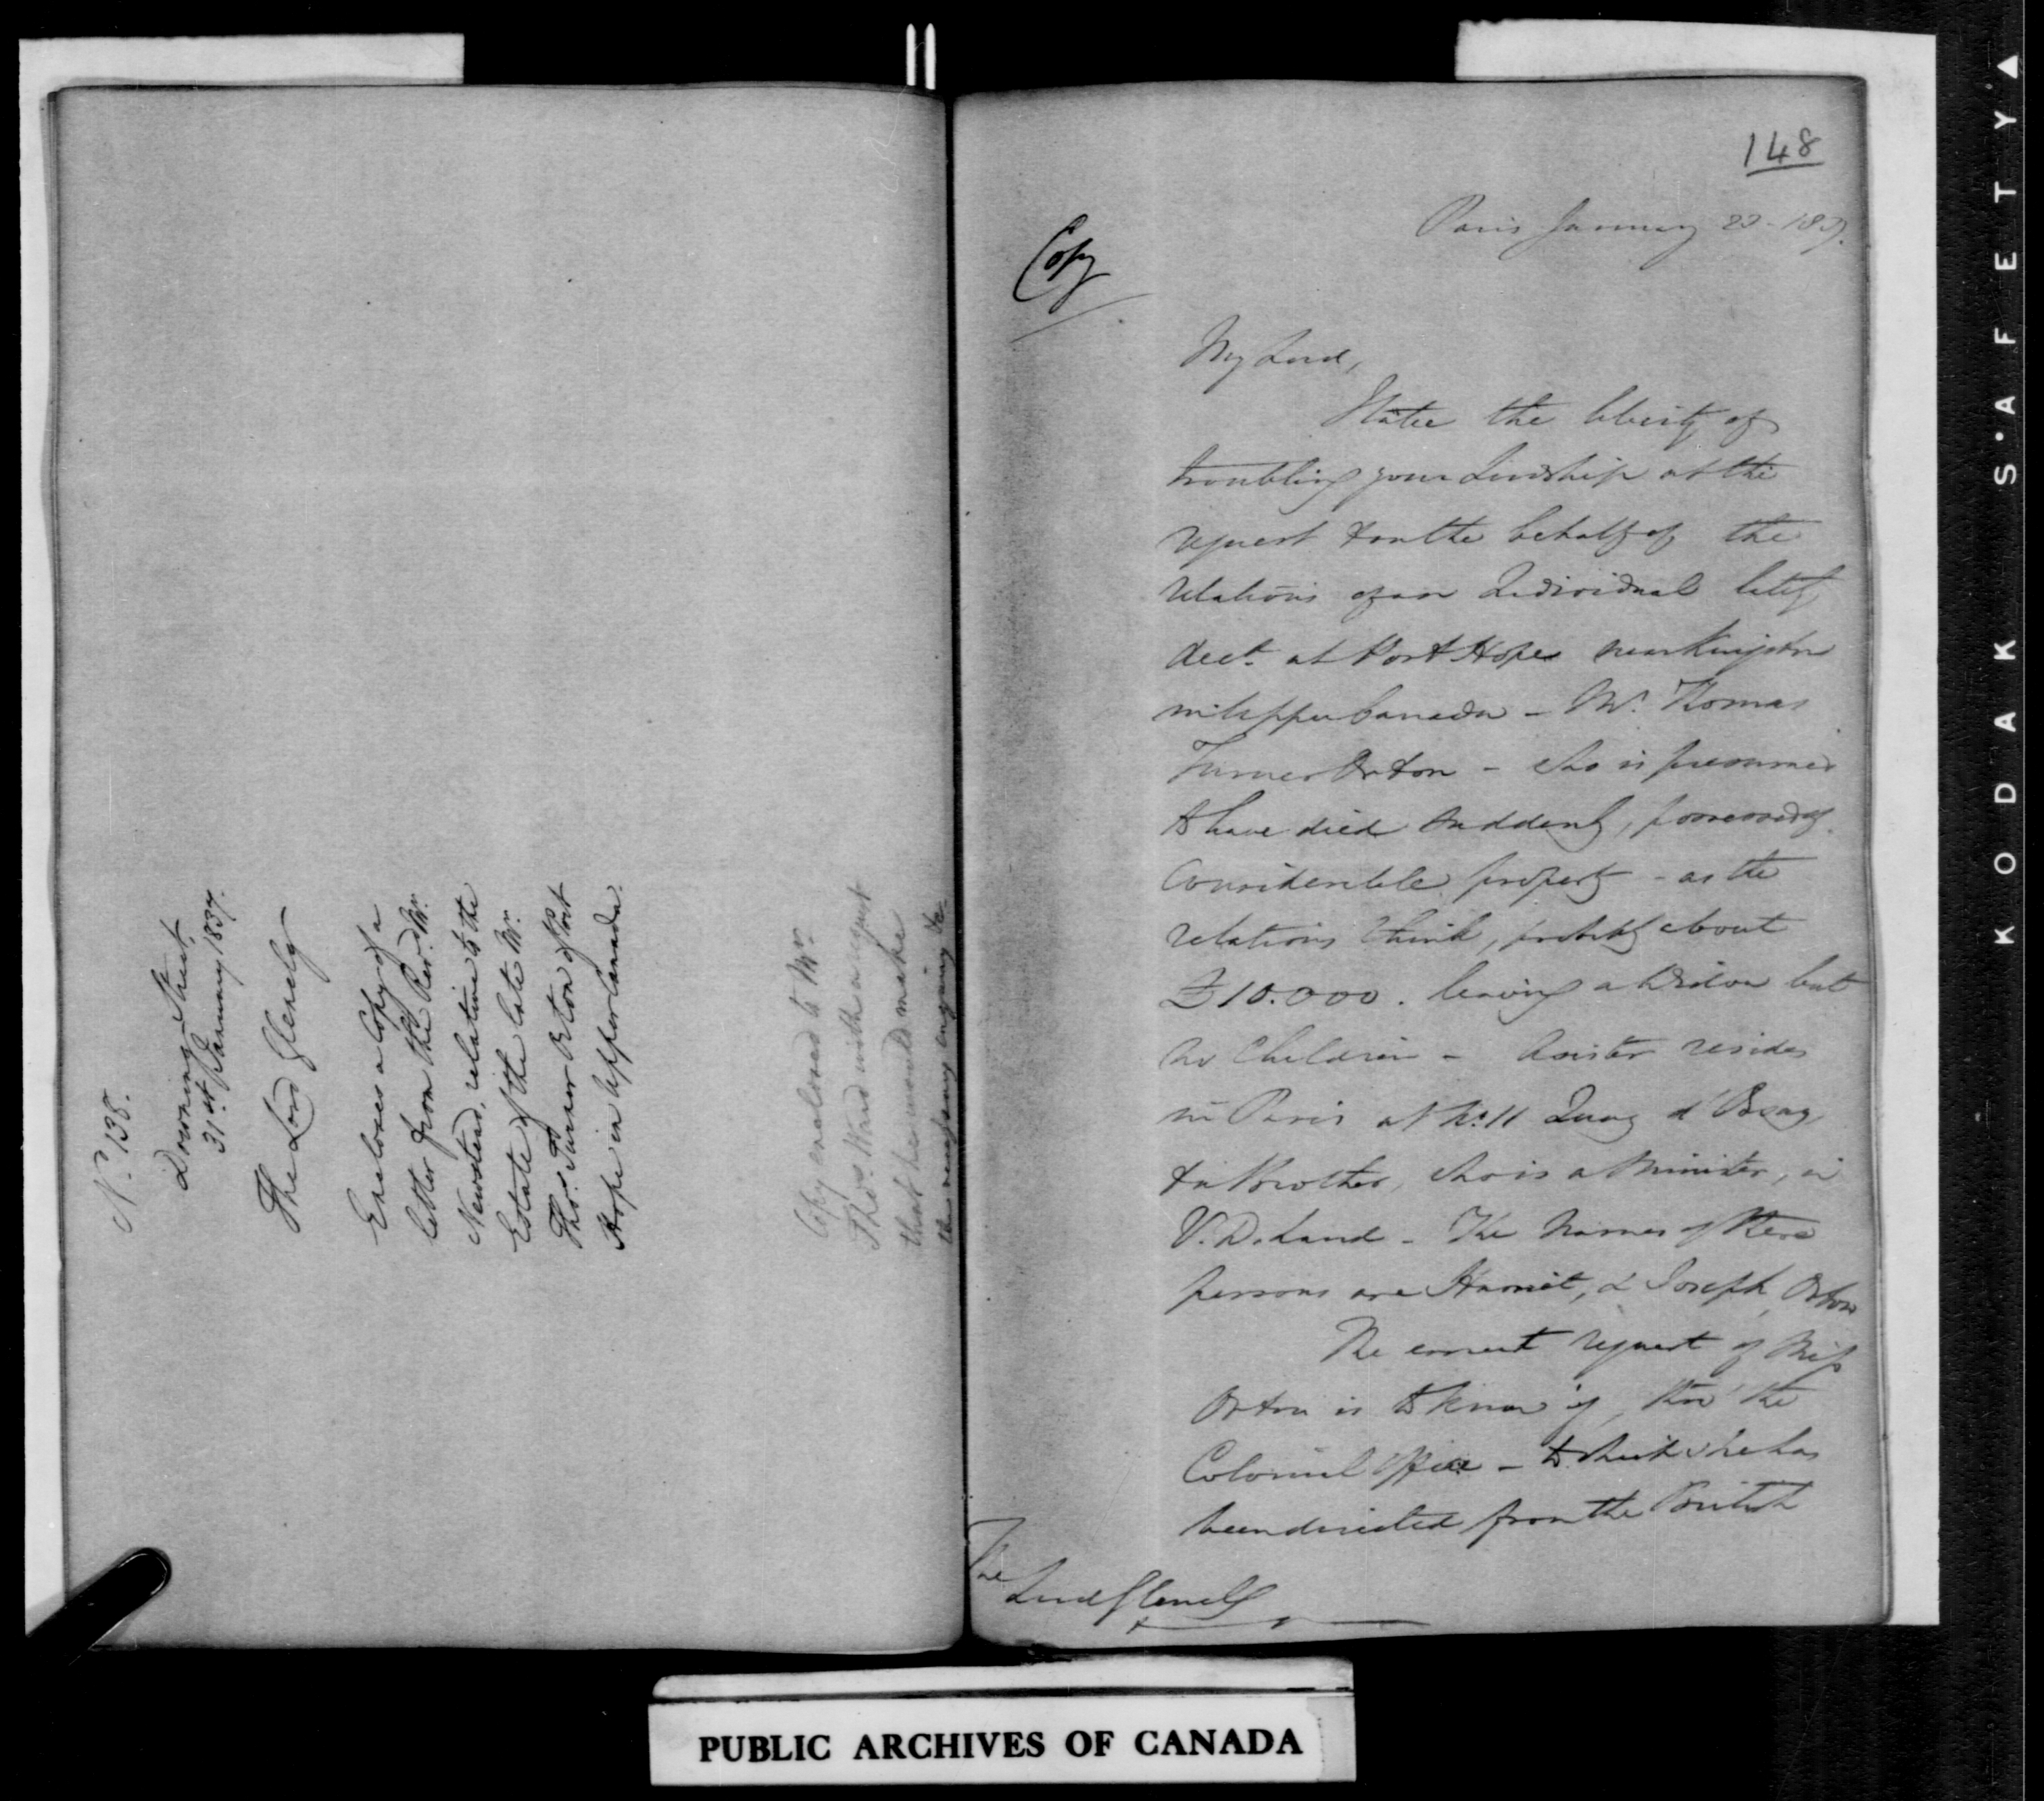 No. 138.
Downing Street,
31st January 1837.
The Lord Glenelg
Encloses a Copy of a
letter from the Revd. Mr.
Newstead, relative to the
Estate of the late Mr.
Thos. Turner Orton of Port
Hope in Upper Canada.
Copy enclosed to Mr.
Thos. Ward with a request
that he would make
the necessary enquiry &c.
148
Paris January 23 - 1837.
Copy
My Lord,
I take the liberty of
troubling your Lordship at the
request & on the behalf of the
relations of an Individual lately
decd. at Port Hope near Kingston
in Upper Canada - Mr. Thomas
Turner Orton - who is presumed
to have died suddenly, possessed of
considerable property - as the
relations think, probably about
£10.000. leaving a Widow but
no Children - A sister resides
in Paris at No. 11 Quay d'Orsay,
& a Brother, who is a Minister, in
V. D. Land - The Names of these
persons are Harriet, & Joseph, Orton
The earnest request of Miss
Orton is to know if, thro' the
Colonial Office - to which she has
been directed from the British
The
Lord Glenelg
PUBLIC ARCHIVES OF CANADA
KODAK S·AFETY ▲